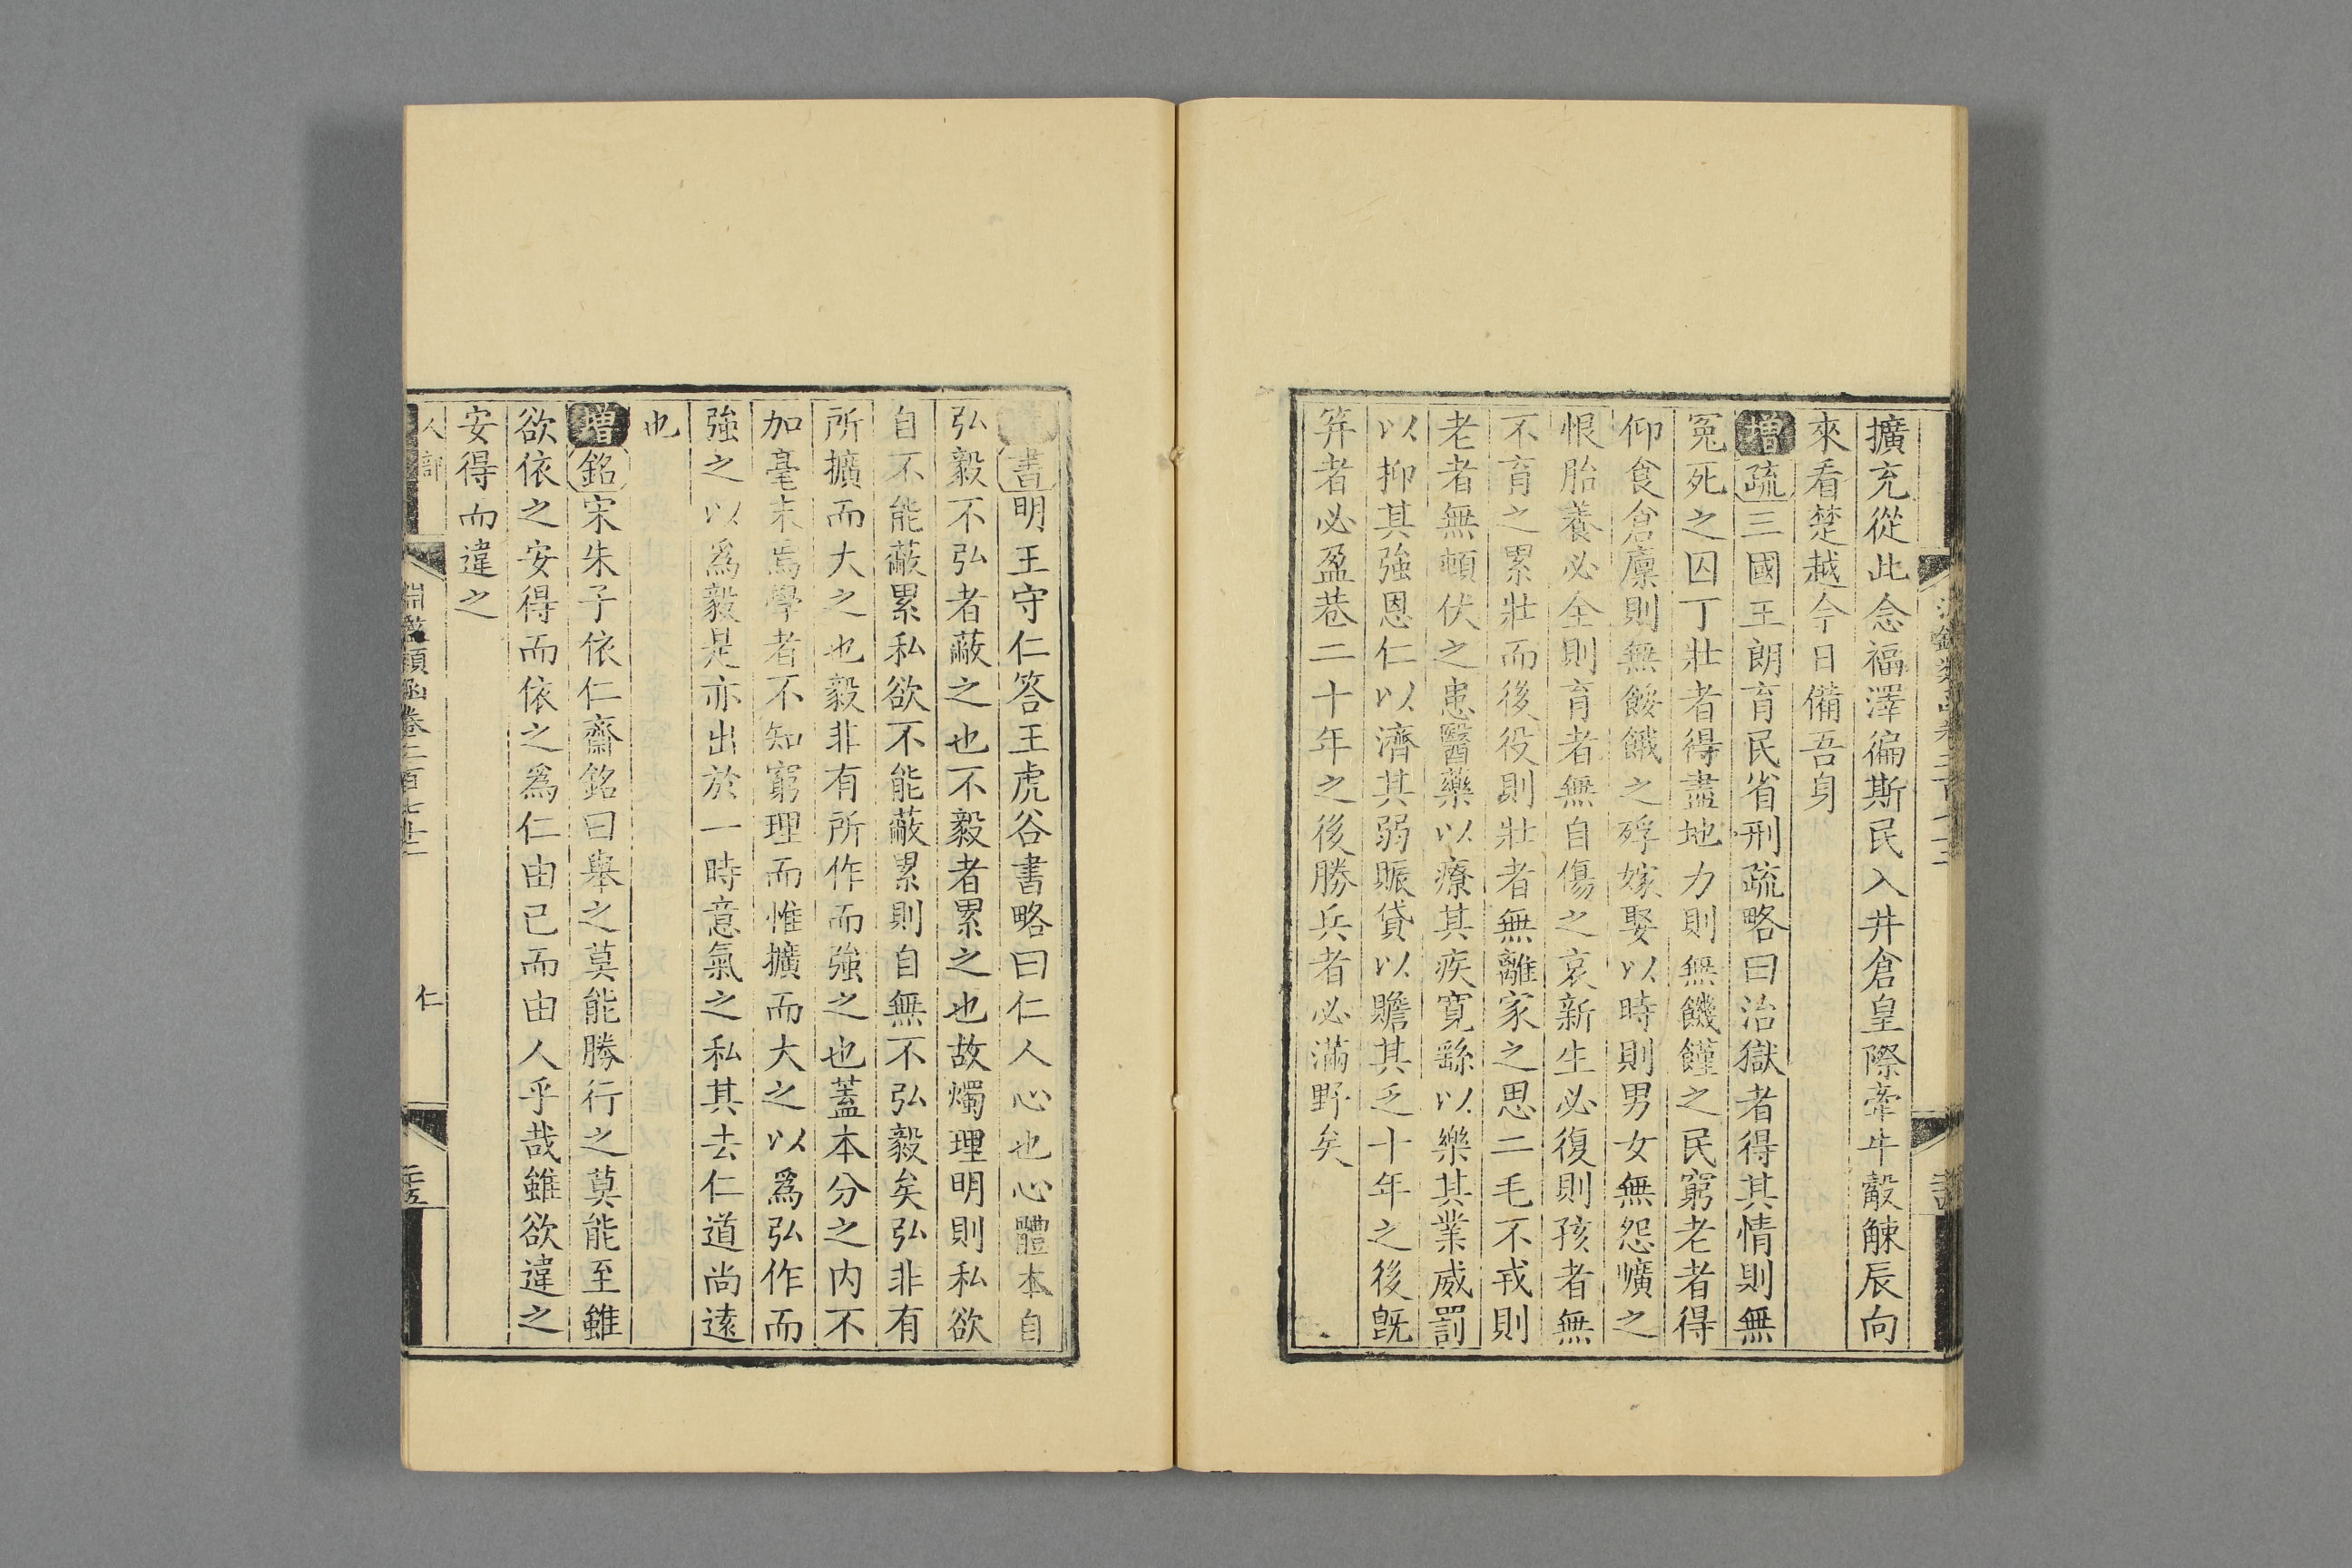 擴充從此念福澤徧斯民入井倉皇際牽牛觳觫辰向
來看楚越今日備吾身
增疏三國王朗育民省刑疏略曰治獄者得其情則無
冤死之囚丁壯者得盡地力則無饑饉之民窮老者得
仰食倉廪則無餒餓之殍嫁娶以時則男女無怨曠之
恨胎養必全則育者無自傷之哀新生必復則孩者無
不育之累壯而後役則壯者無離家之思二毛不戎則
老者無頓伏之患醫藥以療其疾寛繇以樂其業威罰
以抑其強恩仁以濟其弱賑貸以贍其乏十年之後旣
笄者必盈巷二十年之後勝兵者必滿野矣
書明王守仁答王虎谷書略曰仁人心也心體本自
弘毅不弘者蔽之也不毅者累之也故燭理明則私欲
自不能蔽累私欲不能蔽累則自無不弘毅矣弘非有
所擴而大之也毅非有所作而強之也蓋本分之内不
加毫末焉學者不知窮理而惟擴而大之以爲弘作而
強之以爲毅是亦出於一時意氣之私其去仁道尚遠
也
增銘宋朱子依仁齋銘曰舉之莫能勝行之莫能至雖
欲依之安得而依之爲仁由己而由人乎哉雖欲違之
安得而違之
人部
淵鑑類函卷二百七十二
仁
二十五